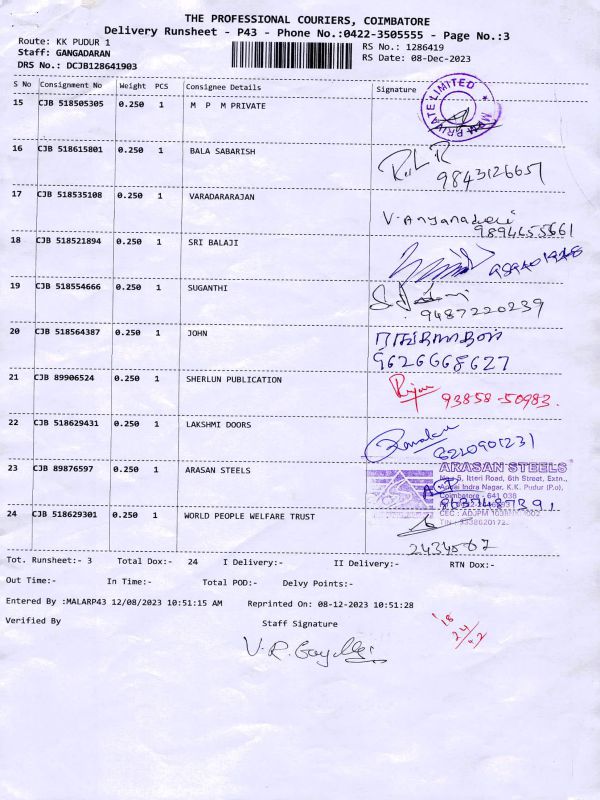 THE PROFESSIONAL COURIERS, COIMBATORE
Delivery Runsheet - P43 - Phone No.:0422-3505555 - Page No.:3
Route: KK PUDUR 1
RS No.: 1286419
Staff: GANGADARAN
RS Date: 08-Dec-2023
DRS No.: DCJB128641903
S No Consignment No Weight PCS Consignee Details Signature
15 CJB 518505305 0.250 1 M P M PRIVATE
PRIVATE LIMITED
16 CJB 518615801 0.250 1 BALA SABARISH
9843126657
17 CJB 518535108 0.250 1 VARADARARAJAN
9894655661
18 CJB 518521894 0.250 1 SRI BALAJI
19 CJB 518554666 0.250 1 SUGANTHI
9487220239
20 CJB 518564387 0.250 1 JOHN
9626668627
21 CJB 89906524 0.250 1 SHERLUN PUBLICATION
93858-50983.
22 CJB 518629431 0.250 1 LAKSHMI DOORS
8220901231
23 CJB 89876597 0.250 1 ARASAN STEELS
ARASAN STEELS
Itteri Road, 6th Street, Extn.,
Indra Nagar, K.K. Pudur (P.o),
Coimbatore - 641 038
24 CJB 518629301 0.250 1 WORLD PEOPLE WELFARE TRUST
Tot. Runsheet:- 3 Total Dox:- 24 I Delivery:- II Delivery:- RTN Dox:-
Out Time:- In Time:- Total POD:- Delvy Points:-
Entered By :MALARP43 12/08/2023 10:51:15 AM Reprinted On: 08-12-2023 10:51:28
Verified By Staff Signature